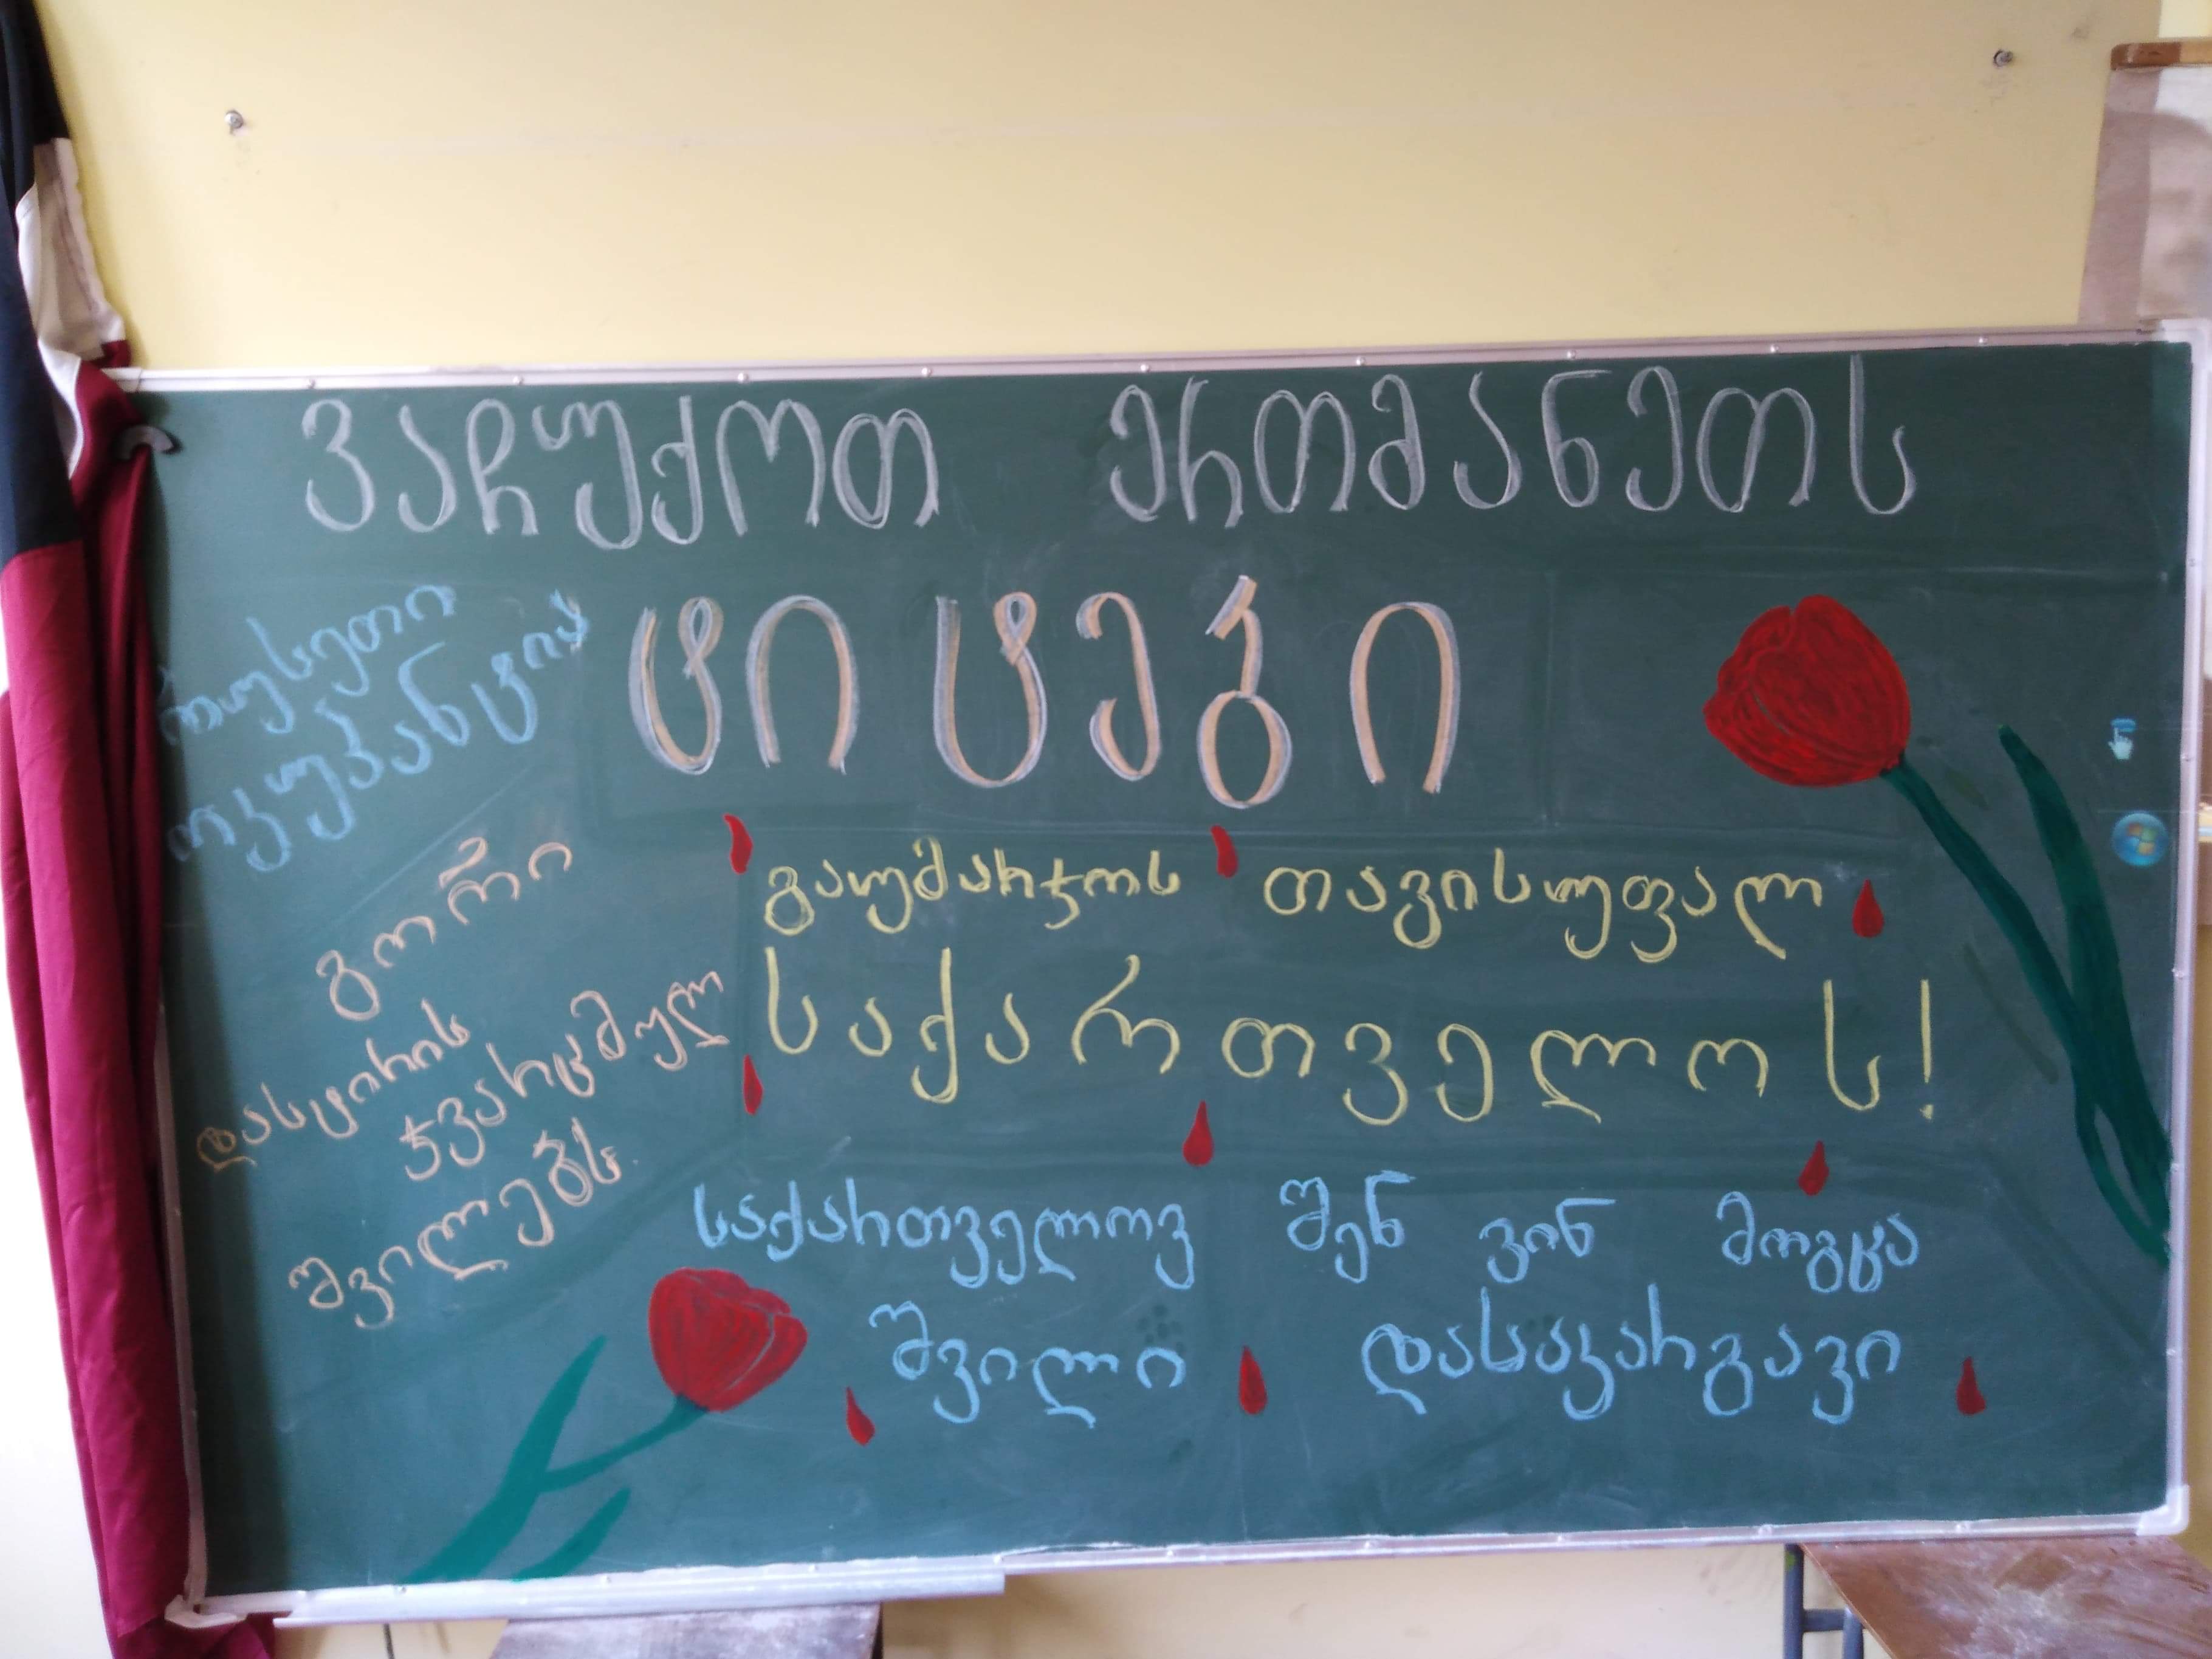 ვაჩუქოთ ერთმანეთს
ტიტები
რუსეთი
ოკუპანტია
გორი
დასტირის
ჯვარცმულ
შვილებს.
გაუმარჯოს თავისუფალ
საქართველოს!
საქართველოვ შენ ვინ მოგცა
შვილი დასაკარგავი